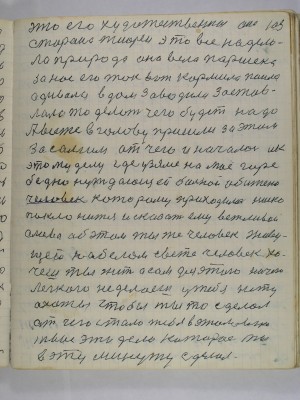 это его художественны она 103
старана жизни это все надело-
ла природа она вела паршека
за нос его ток вот кормила поила
адивала в дом заводила застав-
ляла то делат чего будит надо
А выже в голову пришли за этим
засланим от чего и начался их
это му делу где узяле на маё горе
бедно нуждающей болной обижено
человек которому приходилос нико
нихто и сказат ему вежливае
слова об этом ты же человек живу-
щей на белом свете человек хо-
чеш ты жит а сам для этого ничего
легкого не делаеш у тебя нету
ахоты чтобы ты то сделал
от чего стало тебя в этом
твае это дело которае ты
в эту минуту сделал-